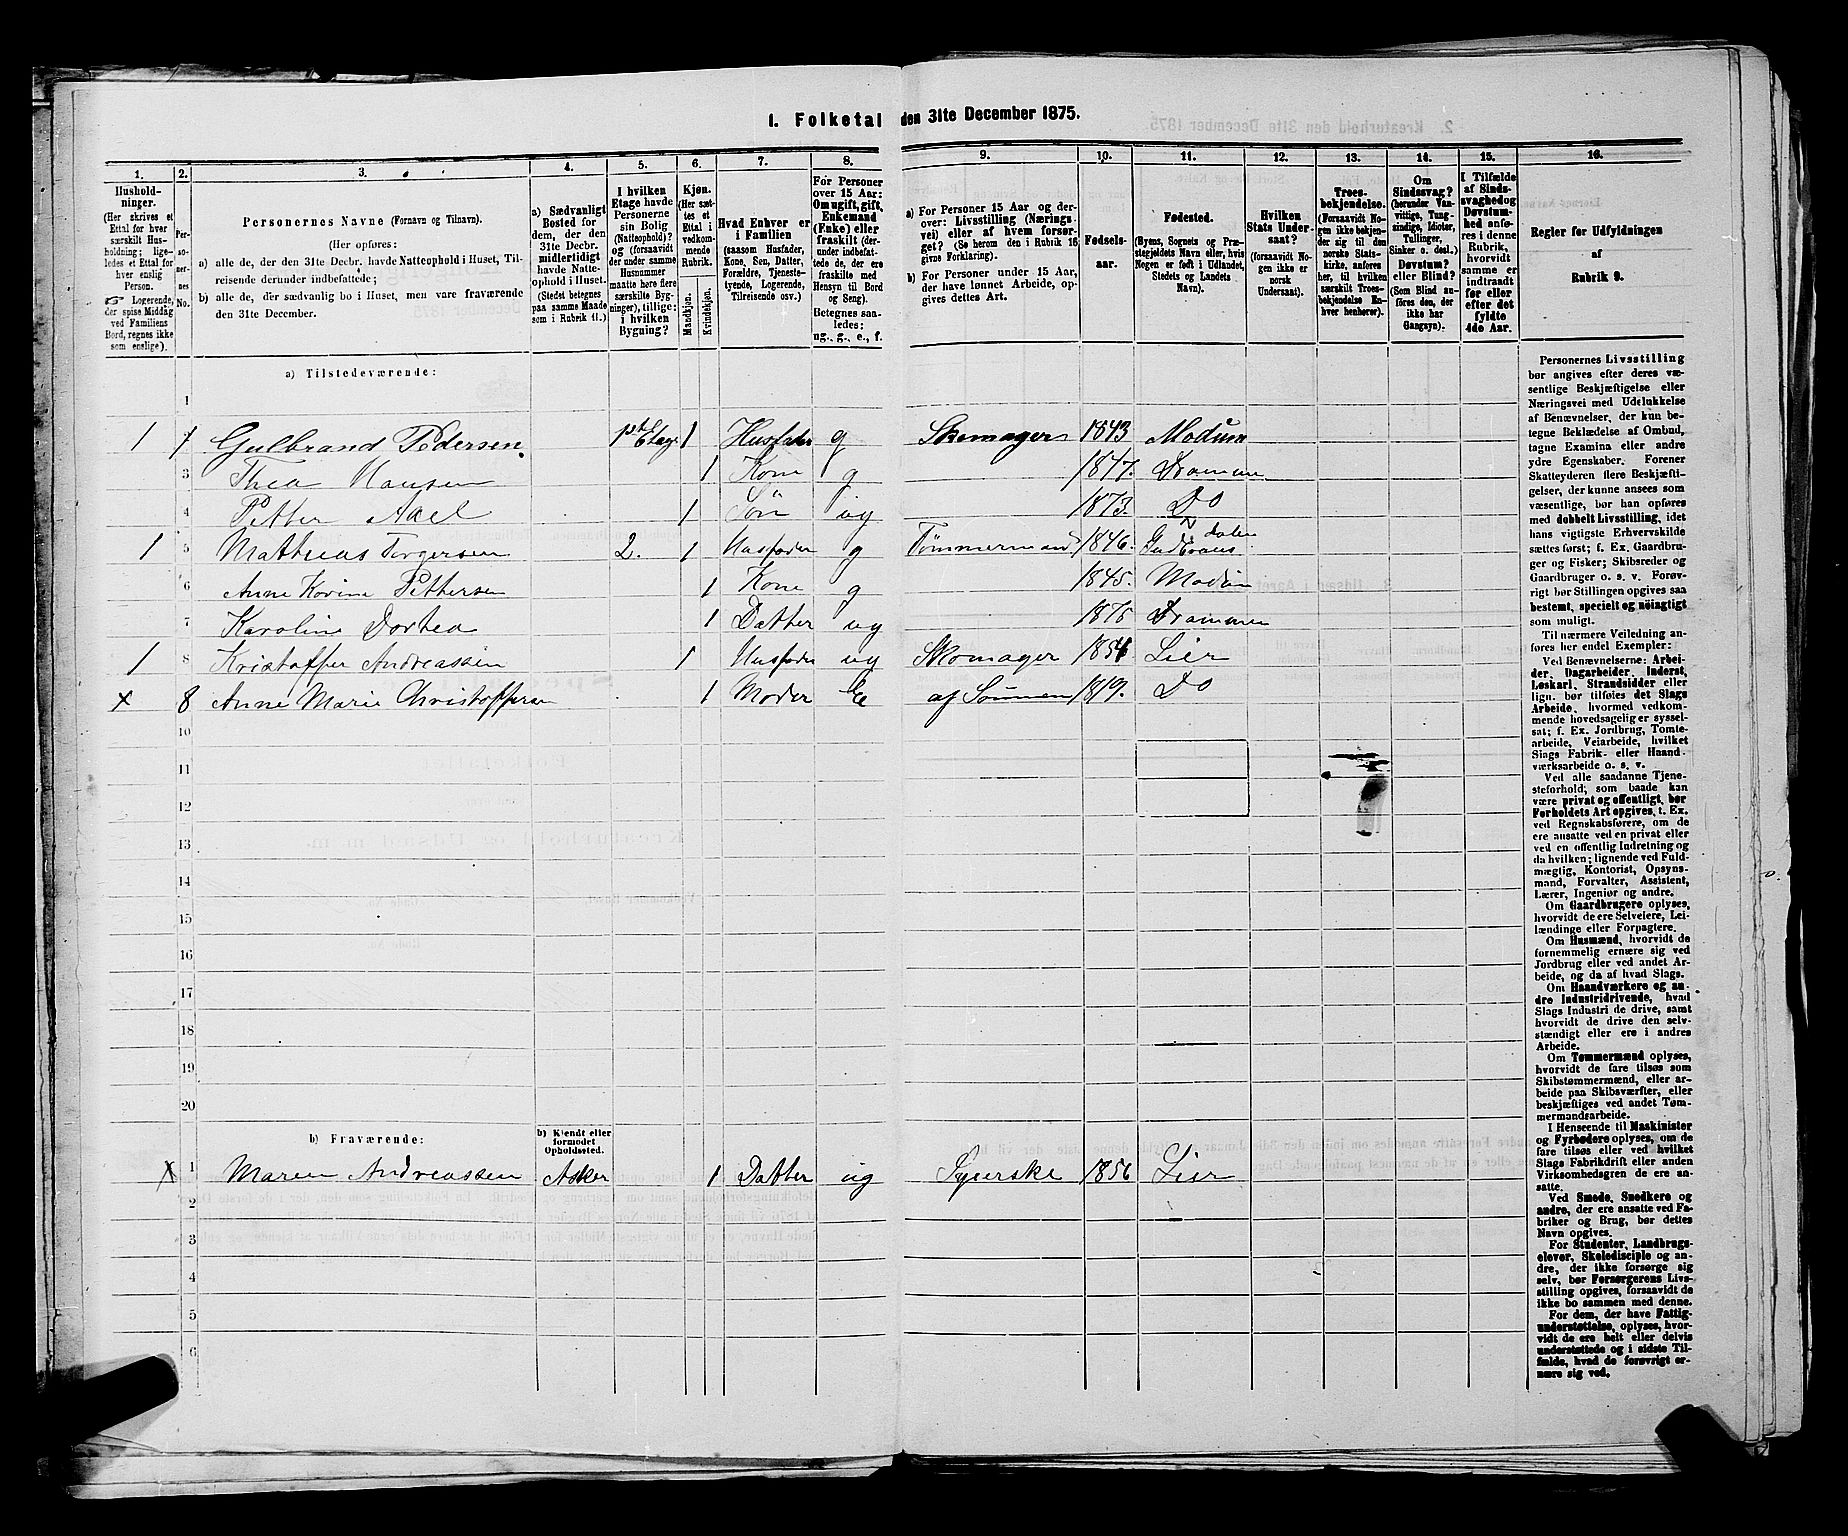 1. Folketal den 31te December 1875.
1. 2. 3. 4. 5. 6. 7. 8. 9. 10. 11. 12. 13. 14. 15. 16.
Hushold-
ninger.
(Her skrives et
Ettal for hver
særskilt Hus-
holdning; lige-
ledes et Ettal for
hver enslig
Person.
☞ Logerende,
der spise Middag
ved Familiens
Bord, regnes ikke
som enslige).
Per-
so-
ner-
nes
No.
Personernes Navne (Fornavn og Tilnavn).
(Her opføres:
a) alle de, der den 31te Decbr. havde Natteophold i Huset, Til-
reisende derunder indbefattede;
b) alle de, der sædvanlig bo i Huset, men vare fraværende
den 31te December.
a) Sædvanligt
Bosted for
dem, der den
31te Decbr.
midlertidigt
havde Natte-
ophold i Huset.
(Stedet betegnes
paa samme Maade
som i Rubrik 11.)
I hvilken
Etage havde
Personerne
sin Bolig
(Natteophold)?
og (forsaavidt
der under samme
Husnummer
maatte høre flere
særskilte Byg-
ninger), tillige:
i hvilken
Bygning?
Kjøn.
(Her sæt-
tes et
Ettal i
vedkom-
mende
Rubrik.
Mandkjøn.
Kvindekjøn.
Hvad Enhver er
i Familien
(saasom Husfader,
Kone, Søn, Datter,
Forældre, Tjeneste-
tyende, Logerende,
Tilreisende osv.)
For Personer
over 15 Aar:
Om ugift, gift,
Enkemand
(Enke) eller
fraskilt (der-
under indbefat-
tede de, der ere
fraskilte med
Hensyn til Bord
og Seng).
Betegnes saa-
ledes:
ug., g., e., f.
a) For Personer 15 Aar og der-
over: Livsstilling (Nærings-
vei) eller af hvem forsør-
get? (Se herom den i Rubrik 16
givne Forklaring).
b) For Personer under 15 Aar,
der have lønnet Arbeide, op-
gives dettes Art.
Fødsels-
aar.
Fødested.
(Byens, Sognets og Præ-
stegjeldets Navn eller, hvis
Nogen er født i Udlandet,
Stedets og Landets
Navn).
Hvilken
Stats Under-
saat?
(forsaavidt No-
gen ikke er
norsk
Undersaat).
Troes-
bekjendelse.
(Forsaavidt No-
gen ikke bekjen-
der sig til den
norske Stats-
kirke, anføres
her, til hvilken
særskilt Troes-
bekjendelse En-
hver henhører).
Om
Sindssvag?
(herunder Van-
vittige, Tung-
sindige, Idioter,
Tullinger,
Sinker o. desl.)
Døvstum?
eller Blind?
(Som Blind an-
føres den, der
ikke har
Gangsyn).
I Tilfælde
af Sinds-
svaghed og
Døvstum-
hed anfø-
res i denne
Rubrik,
hvorvidt
samme er
indtraadt
før eller
efter det
fyldte
4de Aar.
Regler for Udfyldningen
af
Rubrik 9.
a) Tilstedeværende:
1
1 1 Gulbrand Pedersen. 1ste Etage 1 Husfader g Skomager 1843 Modum
3 Thea Hansen 1 Kone g 1847. Drammen
4 Petter Axel 1 Søn ug 1873. Do
1 5 Mathias Torgersen 2. 1 Husfader g Tømmermand 1846. Gudbrans dalen
6 Anne Korine Pettersen 1 Kone g 1845. Modum
7 Karoline Dorthea 1 Datter ug 1875 Drammen
1 8 Kristoffer Andreassen 1 Husfader ug Skomager 1854 Lier
x 8 Anne Marie Christoffersen 1 Moder E af Sønnen 1819. Do
10
11
12
13
14
15
16
17
18
19
20
b) Fraværende:
b) Kjendt eller
formodet
Opholdssted.
x 1 Maren Andreassen Asker 1 Datter ug Syerske 1856 Lier
2
3
4
5
6
Personernes Livsstilling
bør angives efter deres væ-
sentlige Beskjæftigelse eller
Næringsvei med Udelukkelse
af Benævnelser, der kun be-
tegne Beklædelse af Ombud,
tagne Examina eller andre
ydre Egenskaber. Forener
Skatteyderen flere Beskjæfti-
gelser, der kunne ansees som
væsentlige, bør han opføres
med dobbelt Livsstilling, idet
hans vigtigste Erhvervskilde
sættes først; f. Ex. Gaardbru-
ger og Fisker; Skibsreder og
Gaardbruger o. s. v. Forøv-
rigt bør Stillingen opgives saa
bestemt, specielt og nøiagtigt
som muligt.
Til nærmere Veiledning an-
føres her endel Exempler:
Ved Benævnelserne: Arbei-
der, Dagarbeider, Inderst,
Løskarl, Strandsidder eller
lign. bør tilføies det Slags
Arbeide, hvormed vedkom-
mende hovedsagelig er syssel-
sat; f. Ex. Jordbrug, Tomte-
arbeide, Veiarbeide, hvilket
Slags Fabrik- eller Haand-
værksarbeide o. s. v.
Ved alle saadanne Tjene-
steforhold, som baade kan
være privat og offentligt, bør
Forholdets Art opgives, t. Ex.
ved Regnskabsførere, om de
ere ansatte ved en privat eller
ved en offentlig Indretning og
da hvilken; lignende ved Fuld-
mægtig, Kontorist, Opsyns-
mand, Forvalter, Assistent,
Lærer, Ingeniør og andre.
Om Gaardbrugere oplyses,
hvorvidt de ere Selveiere, Lei-
lændinge eller Forpagtere.
Om Husmænd, hvorvidt de
fornemmelig ernære sig ved
Jordbrug eller ved andet Ar-
beide, og da af hvad Slags.
Om Haandværkere og an-
dre Industridrivende, hvad
Slags Industri de drive, samt
hvorvidt de drive den selv-
stændigt eller ere i andres
Arbeide.
Om Tømmermænd oplyses,
hvorvidt de fare tilsøs som
Skibstømmermænd, eller ar-
beide paa Skibsværfter, eller
beskjæftiges ved andet Tøm-
mermandsarbeide.
I Henseende til Maskinister
og Fyrbødere oplyses, om de
fare tilsøs eller ved hvilket
Slags Fabrikdrift eller anden
Virksomhedsgren de ere an-
satte.
Ved Smede, Snedkere og
andre, der ere ansatte ved Fa-
briker og Brug, bør dettes
Navn opgives.
For Studenter, Landbrugs-
elever, Skoledisciple og an-
dre, der ikke forsørge sig
selv, bør Forsørgerens Livs-
stilling opgives, forsaavidt de
ikke bo sammen med denne.
For dem, der have Fattig-
understøttelse, oplyses, hvor-
vidt de ere helt eller delvis
understøttede og i sidste Til-
fælde, hvad de forøvrigt er-
nære sig ved.